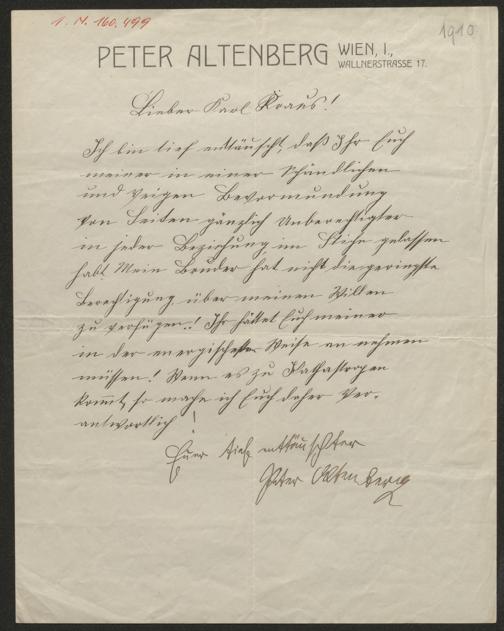 I. N. 160.499
1910
PETER ALTENBERG WIEN, I.,
WALLNERSTRASSE 17.
Lieber Karl Kraus!
Ich bin tief enttäuscht, daß Ihr Euch
meiner in einer schändlichen
und feigen Bevormundung
von Seiten gänzlich Unberechtigter
in jeder Beziehung im Stiche gelassen
habt. Mein Bruder hat nicht die geringste
Berechtigung über meinen Willen
zu verfügen! Ihr hättet Euch meiner
in der energischesten Weise annehmen
müssen! Wenn es zu Katastrophen
kommt, so mache ich Euch daher ver-
antwortlich!
Euer tief enttäuschter
Peter Altenberg